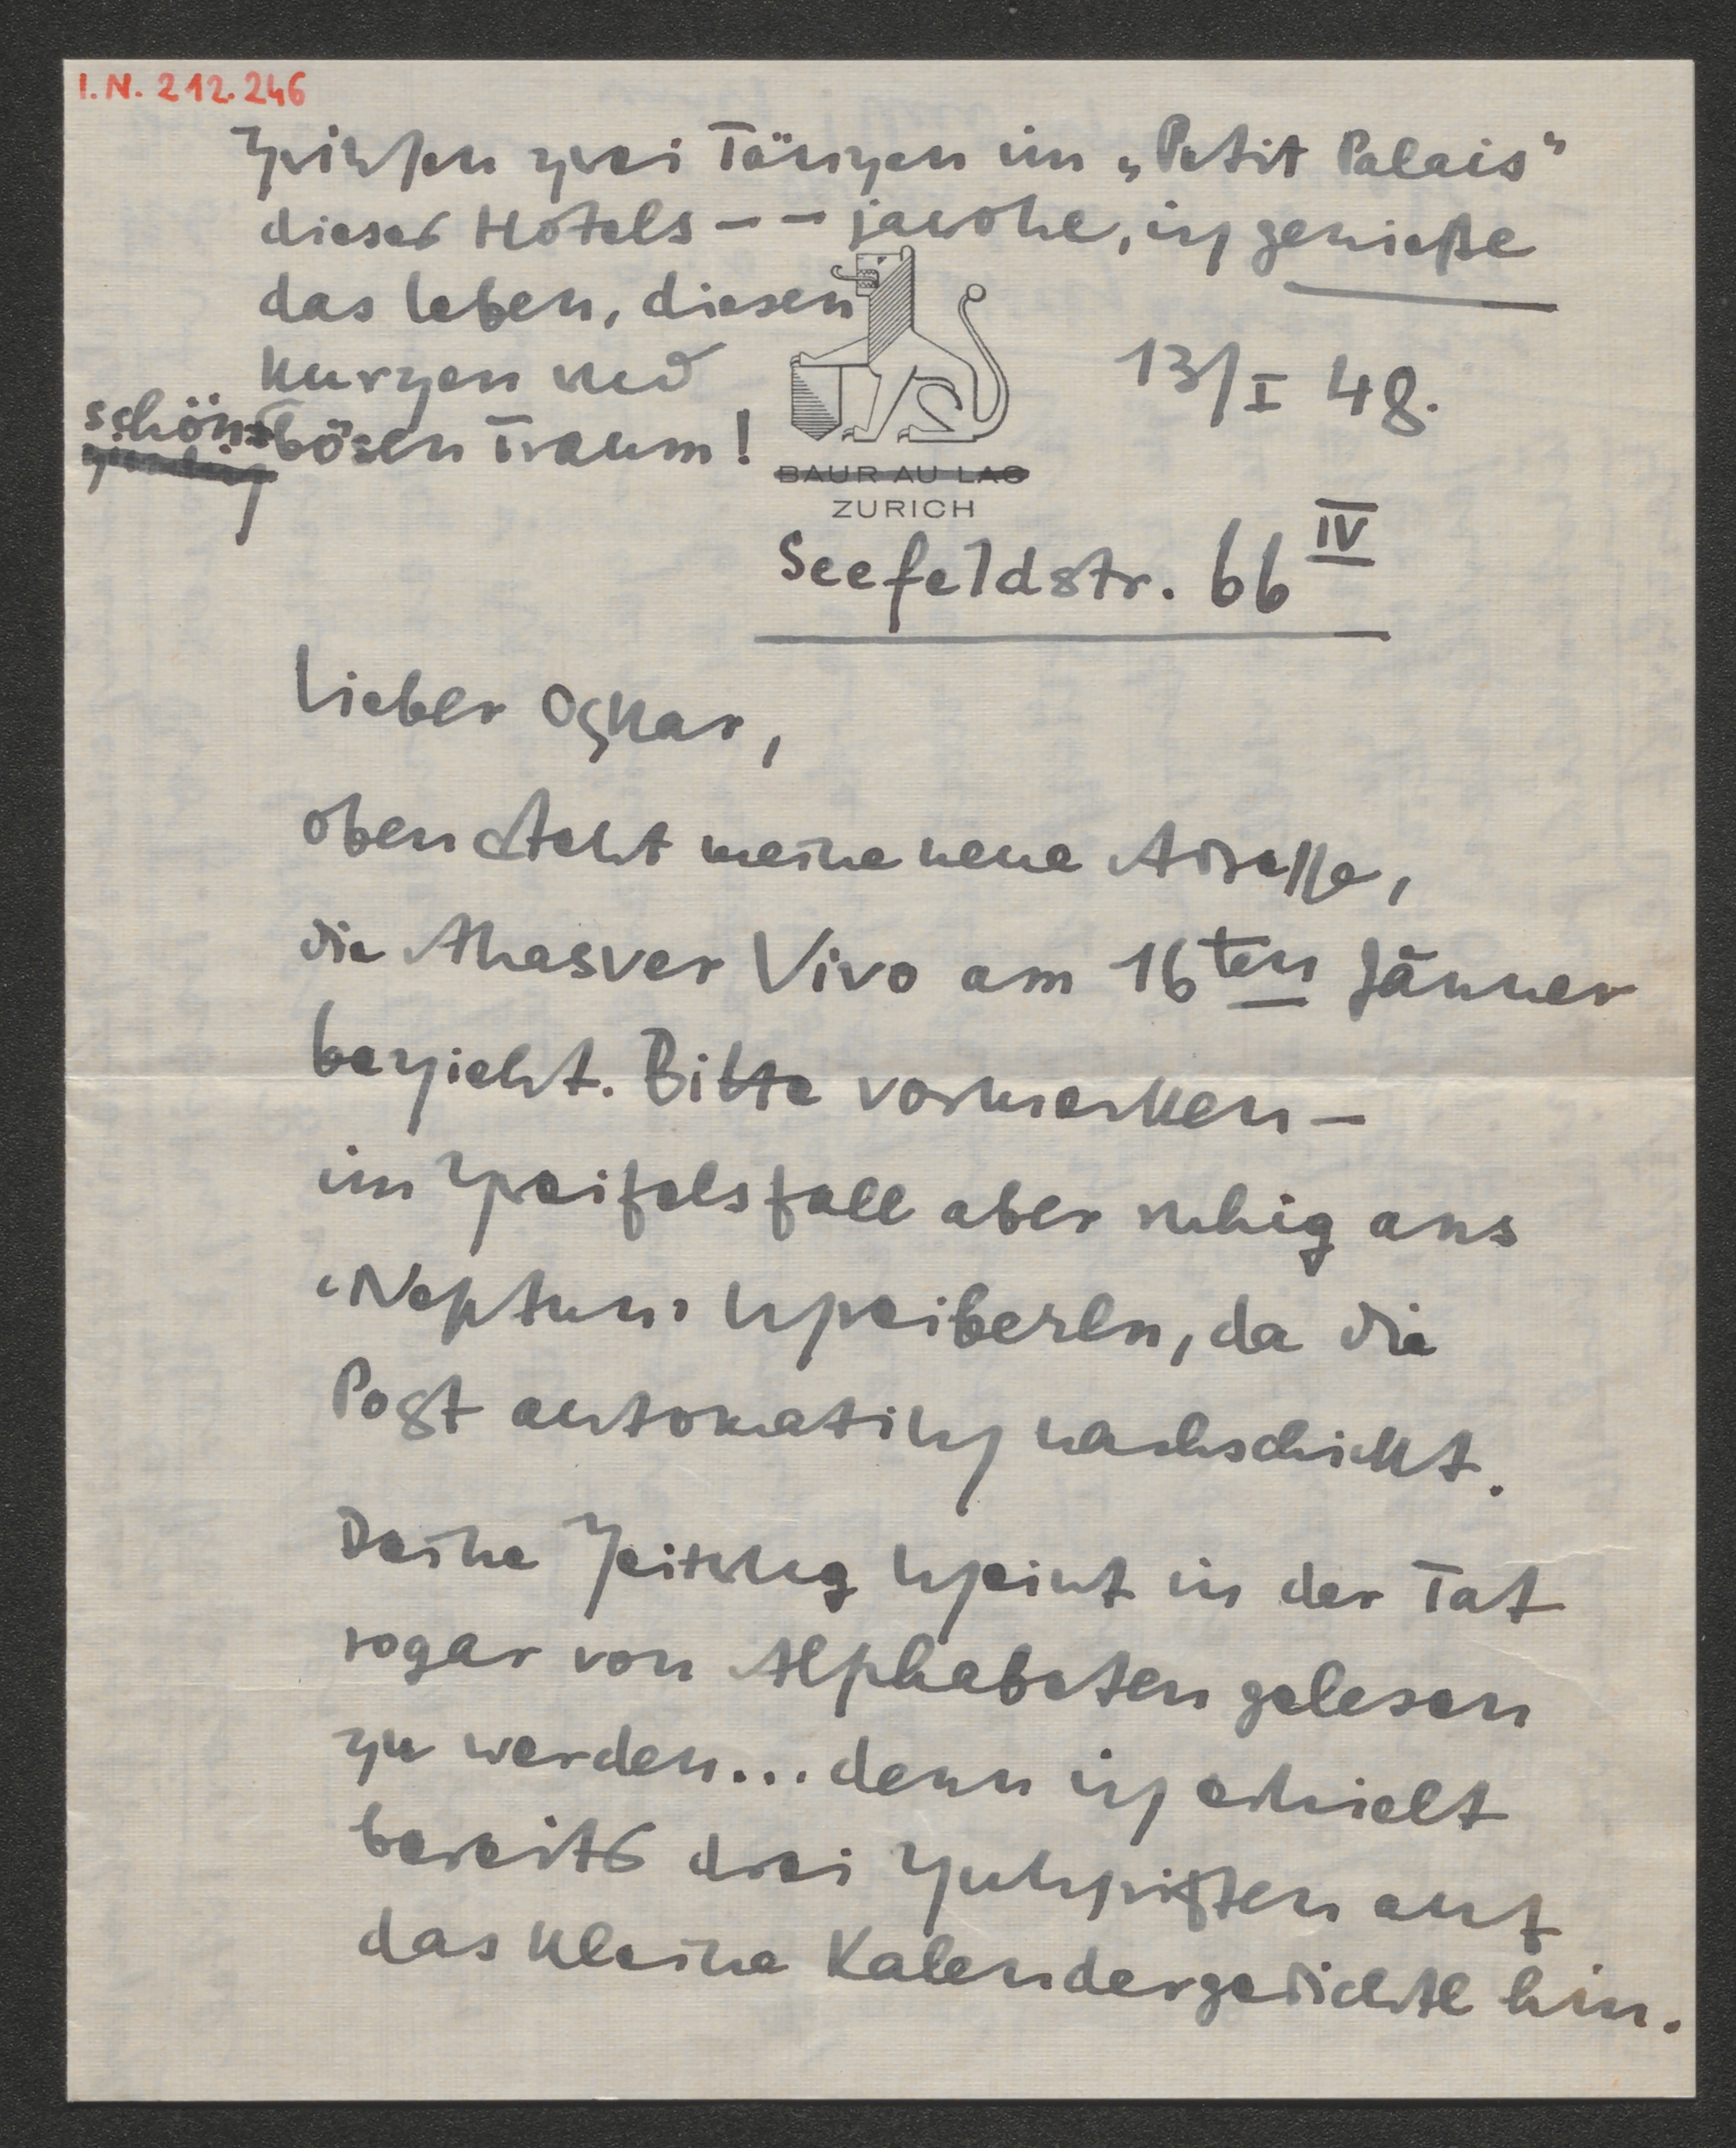 I.N. 212.246
Zwischen zwei Tänzen im „Petit Palais"
dieses Hotels – – jawohl, ich genieße
das Leben, diesen
kurzen und
schön-
bösen Traum!
13/I 48.
BAUR AU LAC
ZURICH
Seefeldstr. 66 IV
Lieber Oskar,
oben steht meine neue Adresse,
die Ahasver Vivo am 16ten Jänner
bezieht. Bitte vormerken –
im Zweifelsfall aber ruhig ans
‹Neptun› schreiberln, da die
Post automatisch nachschickt.
Deine Zeitung scheint in der Tat
sogar von Alphabeten gelesen
zu werden... denn ich erhielt
bereits drei Zuschriften auf
das kleine Kalendergedichtl hin.